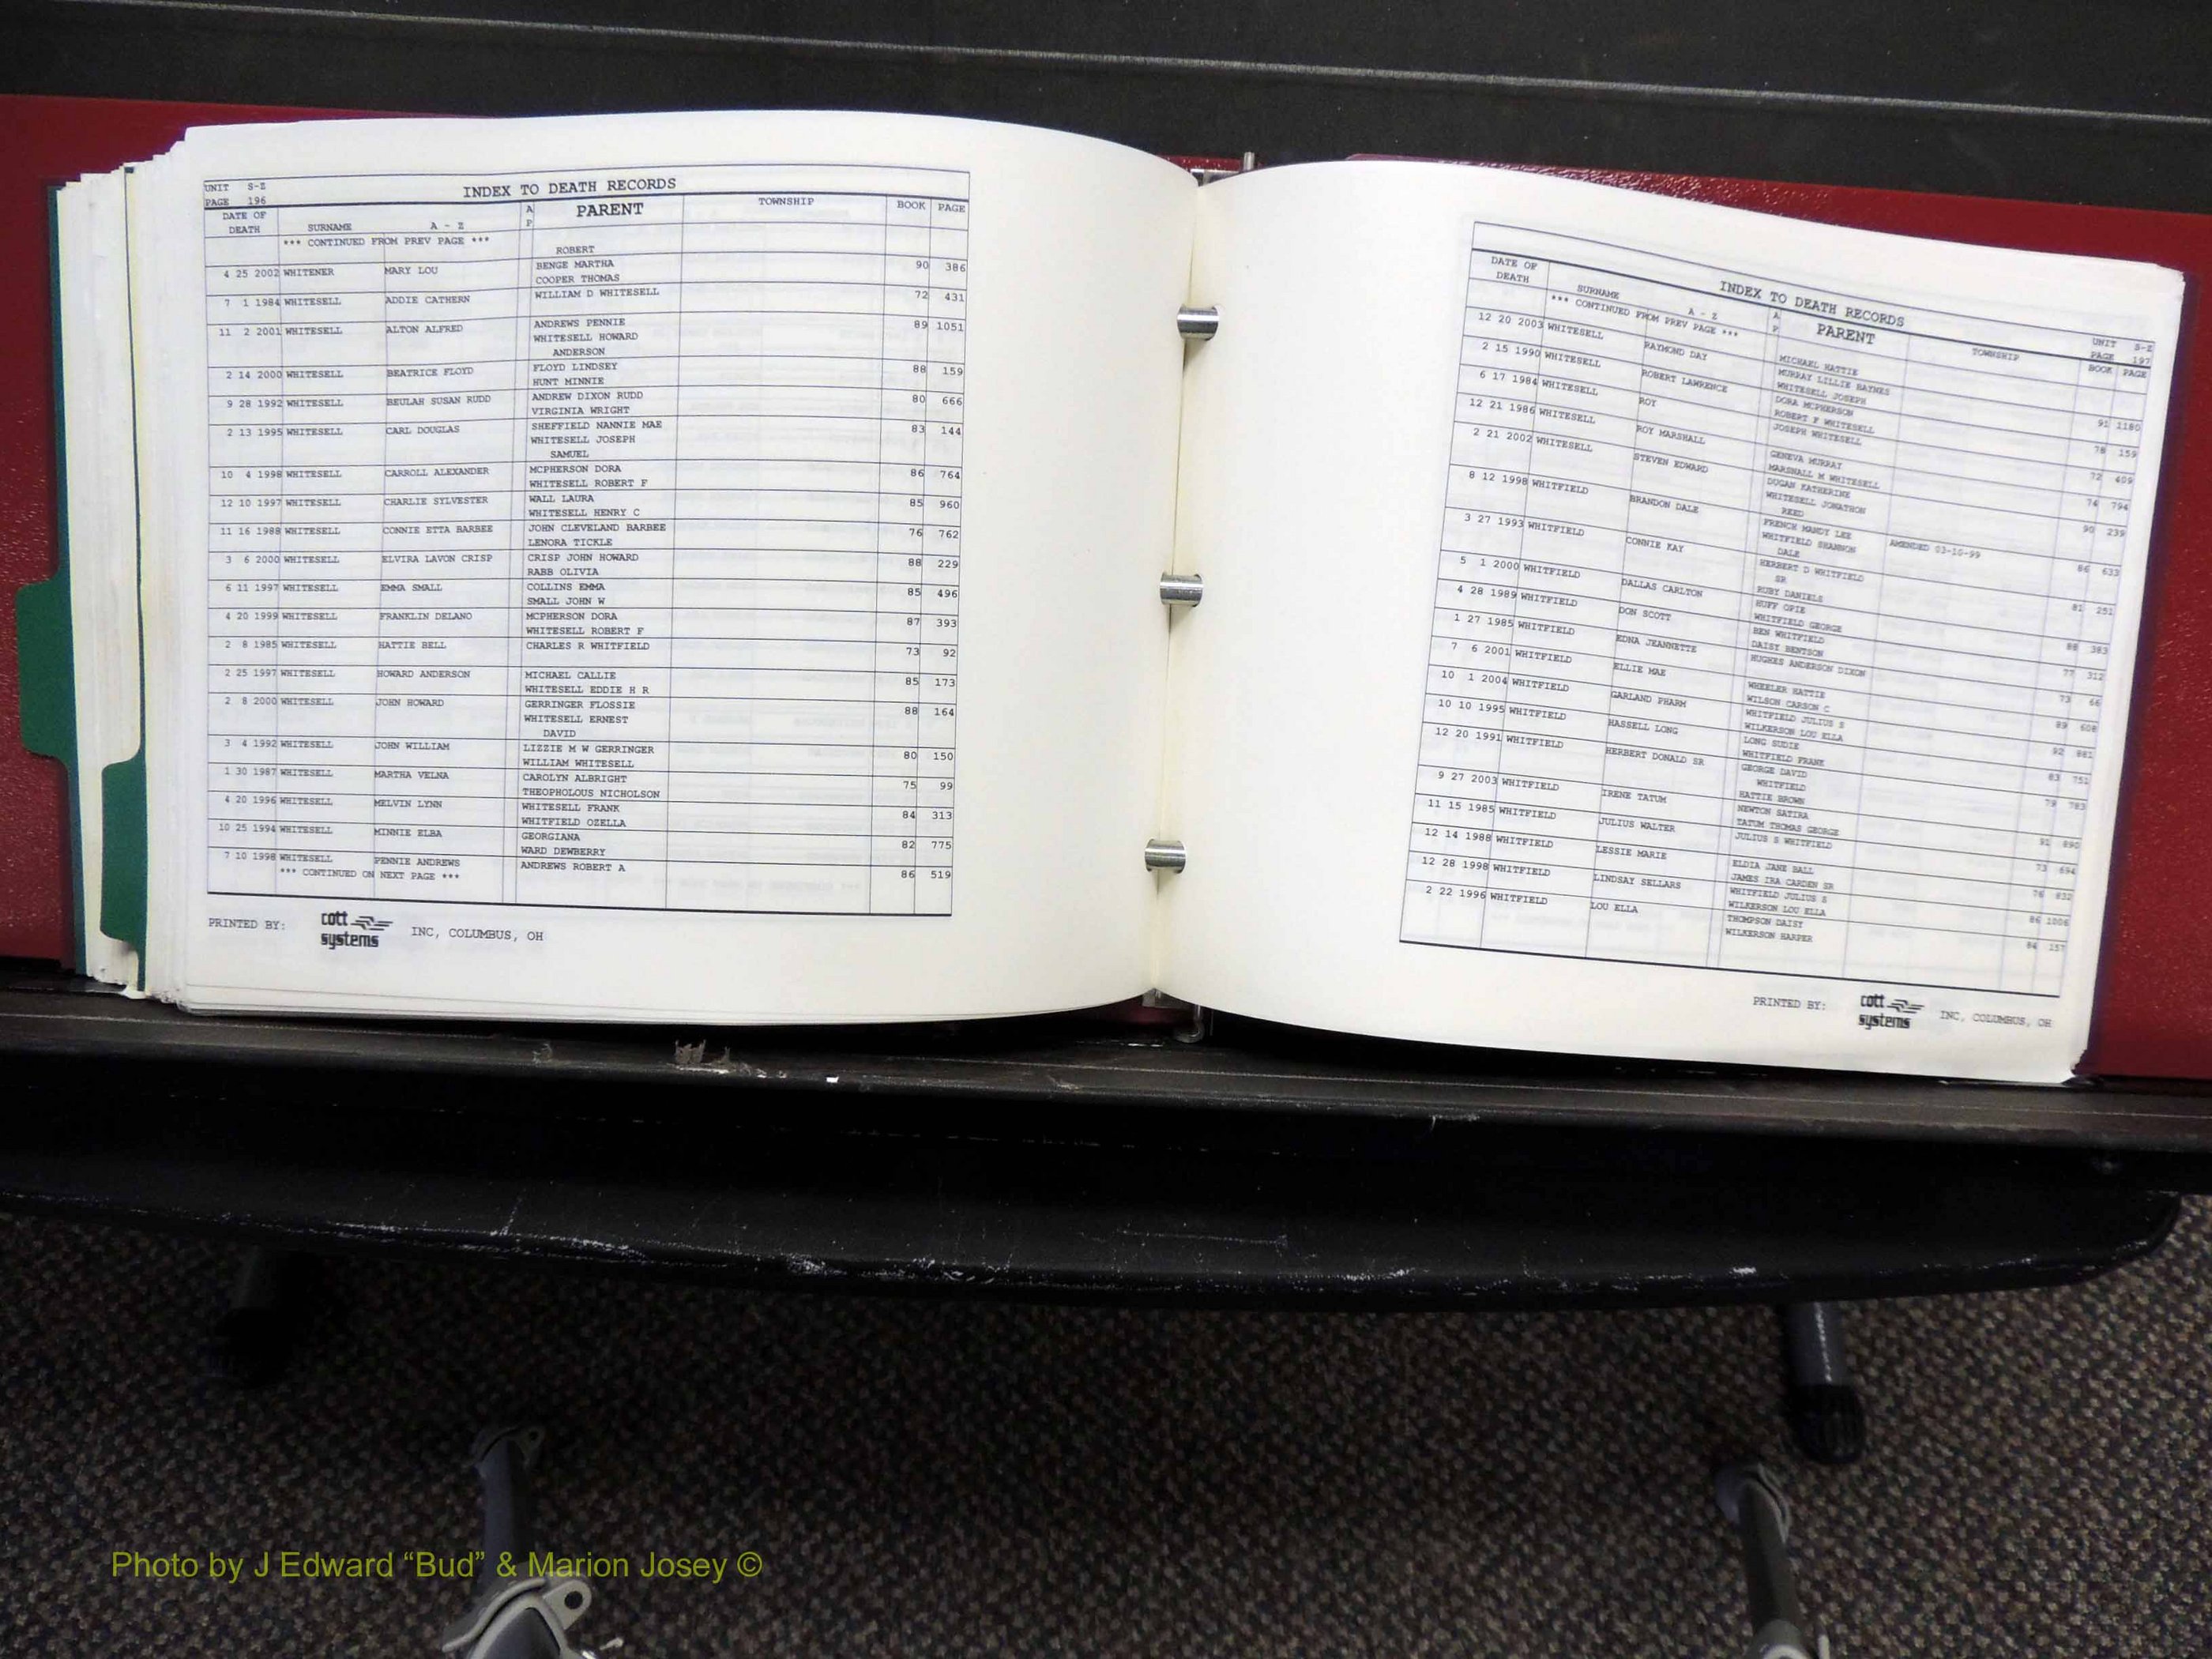 UNIT S-Z
PAGE 196
INDEX TO DEATH RECORDS
DATE OF DEATH SURNAME A - Z A P PARENT TOWNSHIP BOOK PAGE
*** CONTINUED FROM PREV PAGE *** ROBERT
4 25 2002 WHITENER MARY LOU BENGE MARTHA 90 386
COOPER THOMAS
7 1 1984 WHITESELL ADDIE CATHERN WILLIAM D WHITESELL 72 431
11 2 2001 WHITESELL ALTON ALFRED ANDREWS PENNIE 89 1051
WHITESELL HOWARD
ANDERSON
2 14 2000 WHITESELL BEATRICE FLOYD FLOYD LINDSEY 88 159
HUNT MINNIE
9 28 1992 WHITESELL BEULAH SUSAN RUDD ANDREW DIXON RUDD 80 666
VIRGINIA WRIGHT
2 13 1995 WHITESELL CARL DOUGLAS SHEFFIELD NANNIE MAE 83 144
WHITESELL JOSEPH
SAMUEL
10 4 1998 WHITESELL CARROLL ALEXANDER MCPHERSON DORA 86 764
WHITESELL ROBERT F
12 10 1997 WHITESELL CHARLIE SYLVESTER WALL LAURA 85 960
WHITESELL HENRY C
11 16 1988 WHITESELL CONNIE ETTA BARBEE JOHN CLEVELAND BARBEE 76 762
LENORA TICKLE
3 6 2000 WHITESELL ELVIRA LAVON CRISP CRISP JOHN HOWARD 88 229
RABB OLIVIA
6 11 1997 WHITESELL EMMA SMALL COLLINS EMMA 85 496
SMALL JOHN W
4 20 1999 WHITESELL FRANKLIN DELANO MCPHERSON DORA 87 393
WHITESELL ROBERT F
2 8 1985 WHITESELL HATTIE BELL CHARLES R WHITFIELD 73 92
2 25 1997 WHITESELL HOWARD ANDERSON MICHAEL CALLIE 85 173
WHITESELL EDDIE H R
2 8 2000 WHITESELL JOHN HOWARD GERRINGER FLOSSIE 88 164
WHITESELL ERNEST
DAVID
3 4 1992 WHITESELL JOHN WILLIAM LIZZIE M W GERRINGER 80 150
WILLIAM WHITESELL
1 30 1987 WHITESELL MARTHA VELNA CAROLYN ALBRIGHT 75 99
THEOPHOLOUS NICHOLSON
4 20 1996 WHITESELL MELVIN LYNN WHITESELL FRANK 84 313
WHITFIELD OZELLA
10 25 1994 WHITESELL MINNIE ELBA GEORGIANA 82 775
WARD DEWBERRY
7 10 1998 WHITESELL PENNIE ANDREWS ANDREWS ROBERT A 86 519
*** CONTINUED ON NEXT PAGE ***
PRINTED BY: cott systems INC, COLUMBUS, OH
INDEX TO DEATH RECORDS
UNIT S-Z
PAGE 197
DATE OF DEATH SURNAME A - Z A P PARENT TOWNSHIP BOOK PAGE
*** CONTINUED FROM PREV PAGE *** MICHAEL HATTIE
12 20 2003 WHITESELL RAYMOND DAY MURRAY LILLIE HAYNES 91 1180
WHITESELL JOSEPH
2 15 1990 WHITESELL ROBERT LAWRENCE DORA MCPHERSON 78 159
ROBERT F WHITESELL
6 17 1984 WHITESELL ROY JOSEPH WHITESELL 72 409
12 21 1986 WHITESELL ROY MARSHALL GENEVA MURRAY 74 794
MARSHALL M WHITESELL
2 21 2002 WHITESELL STEVEN EDWARD DUGAN KATHERINE 90 239
WHITESELL JONATHON
REED
8 12 1998 WHITFIELD BRANDON DALE FRENCH MANDY LEE AMENDED 03-10-99 86 633
WHITFIELD SHANNON
DALE
3 27 1993 WHITFIELD CONNIE KAY HERBERT D WHITFIELD 81 251
SR
RUBY DANIELS
5 1 2000 WHITFIELD DALLAS CARLTON HUFF OPIE 88 383
WHITFIELD GEORGE
4 28 1989 WHITFIELD DON SCOTT BEN WHITFIELD 77 312
DAISY BENTSON
1 27 1985 WHITFIELD EDNA JEANNETTE HUGHES ANDERSON DIXON 73 66
7 6 2001 WHITFIELD ELLIE MAE WHEELER HATTIE 89 608
WILSON CARSON C
10 1 2004 WHITFIELD GARLAND PHARM WHITFIELD JULIUS S 92 881
WILKERSON LOU ELLA
10 10 1995 WHITFIELD HASSELL LONG LONG SUDIE 83 751
WHITFIELD FRANK
12 20 1991 WHITFIELD HERBERT DONALD SR GEORGE DAVID 79 783
WHITFIELD
HATTIE BROWN
9 27 2003 WHITFIELD IRENE TATUM NEWTON SATIRA 91 890
TATUM THOMAS GEORGE
11 15 1985 WHITFIELD JULIUS WALTER JULIUS S WHITFIELD 73 694
12 14 1988 WHITFIELD LESSIE MARIE ELDIA JANE BALL 76 832
JAMES IRA CARDEN SR
12 28 1998 WHITFIELD LINDSAY SELLARS WHITFIELD JULIUS S 86 1006
WILKERSON LOU ELLA
2 22 1996 WHITFIELD LOU ELLA THOMPSON DAISY 84 157
WILKERSON HARPER
PRINTED BY: cott systems INC, COLUMBUS, OH
Photo by J Edward “Bud” & Marion Josey ©